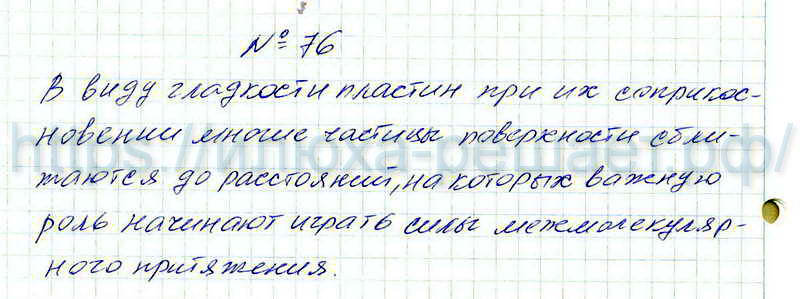 № 76
В виду гладкости пластин при их соприкос-
новении многие частицы поверхности сбли-
жаются до расстояний, на которых важную
роль начинают играть силы межмолекуляр-
ного притяжения.
https://гитюха-решает.рф/